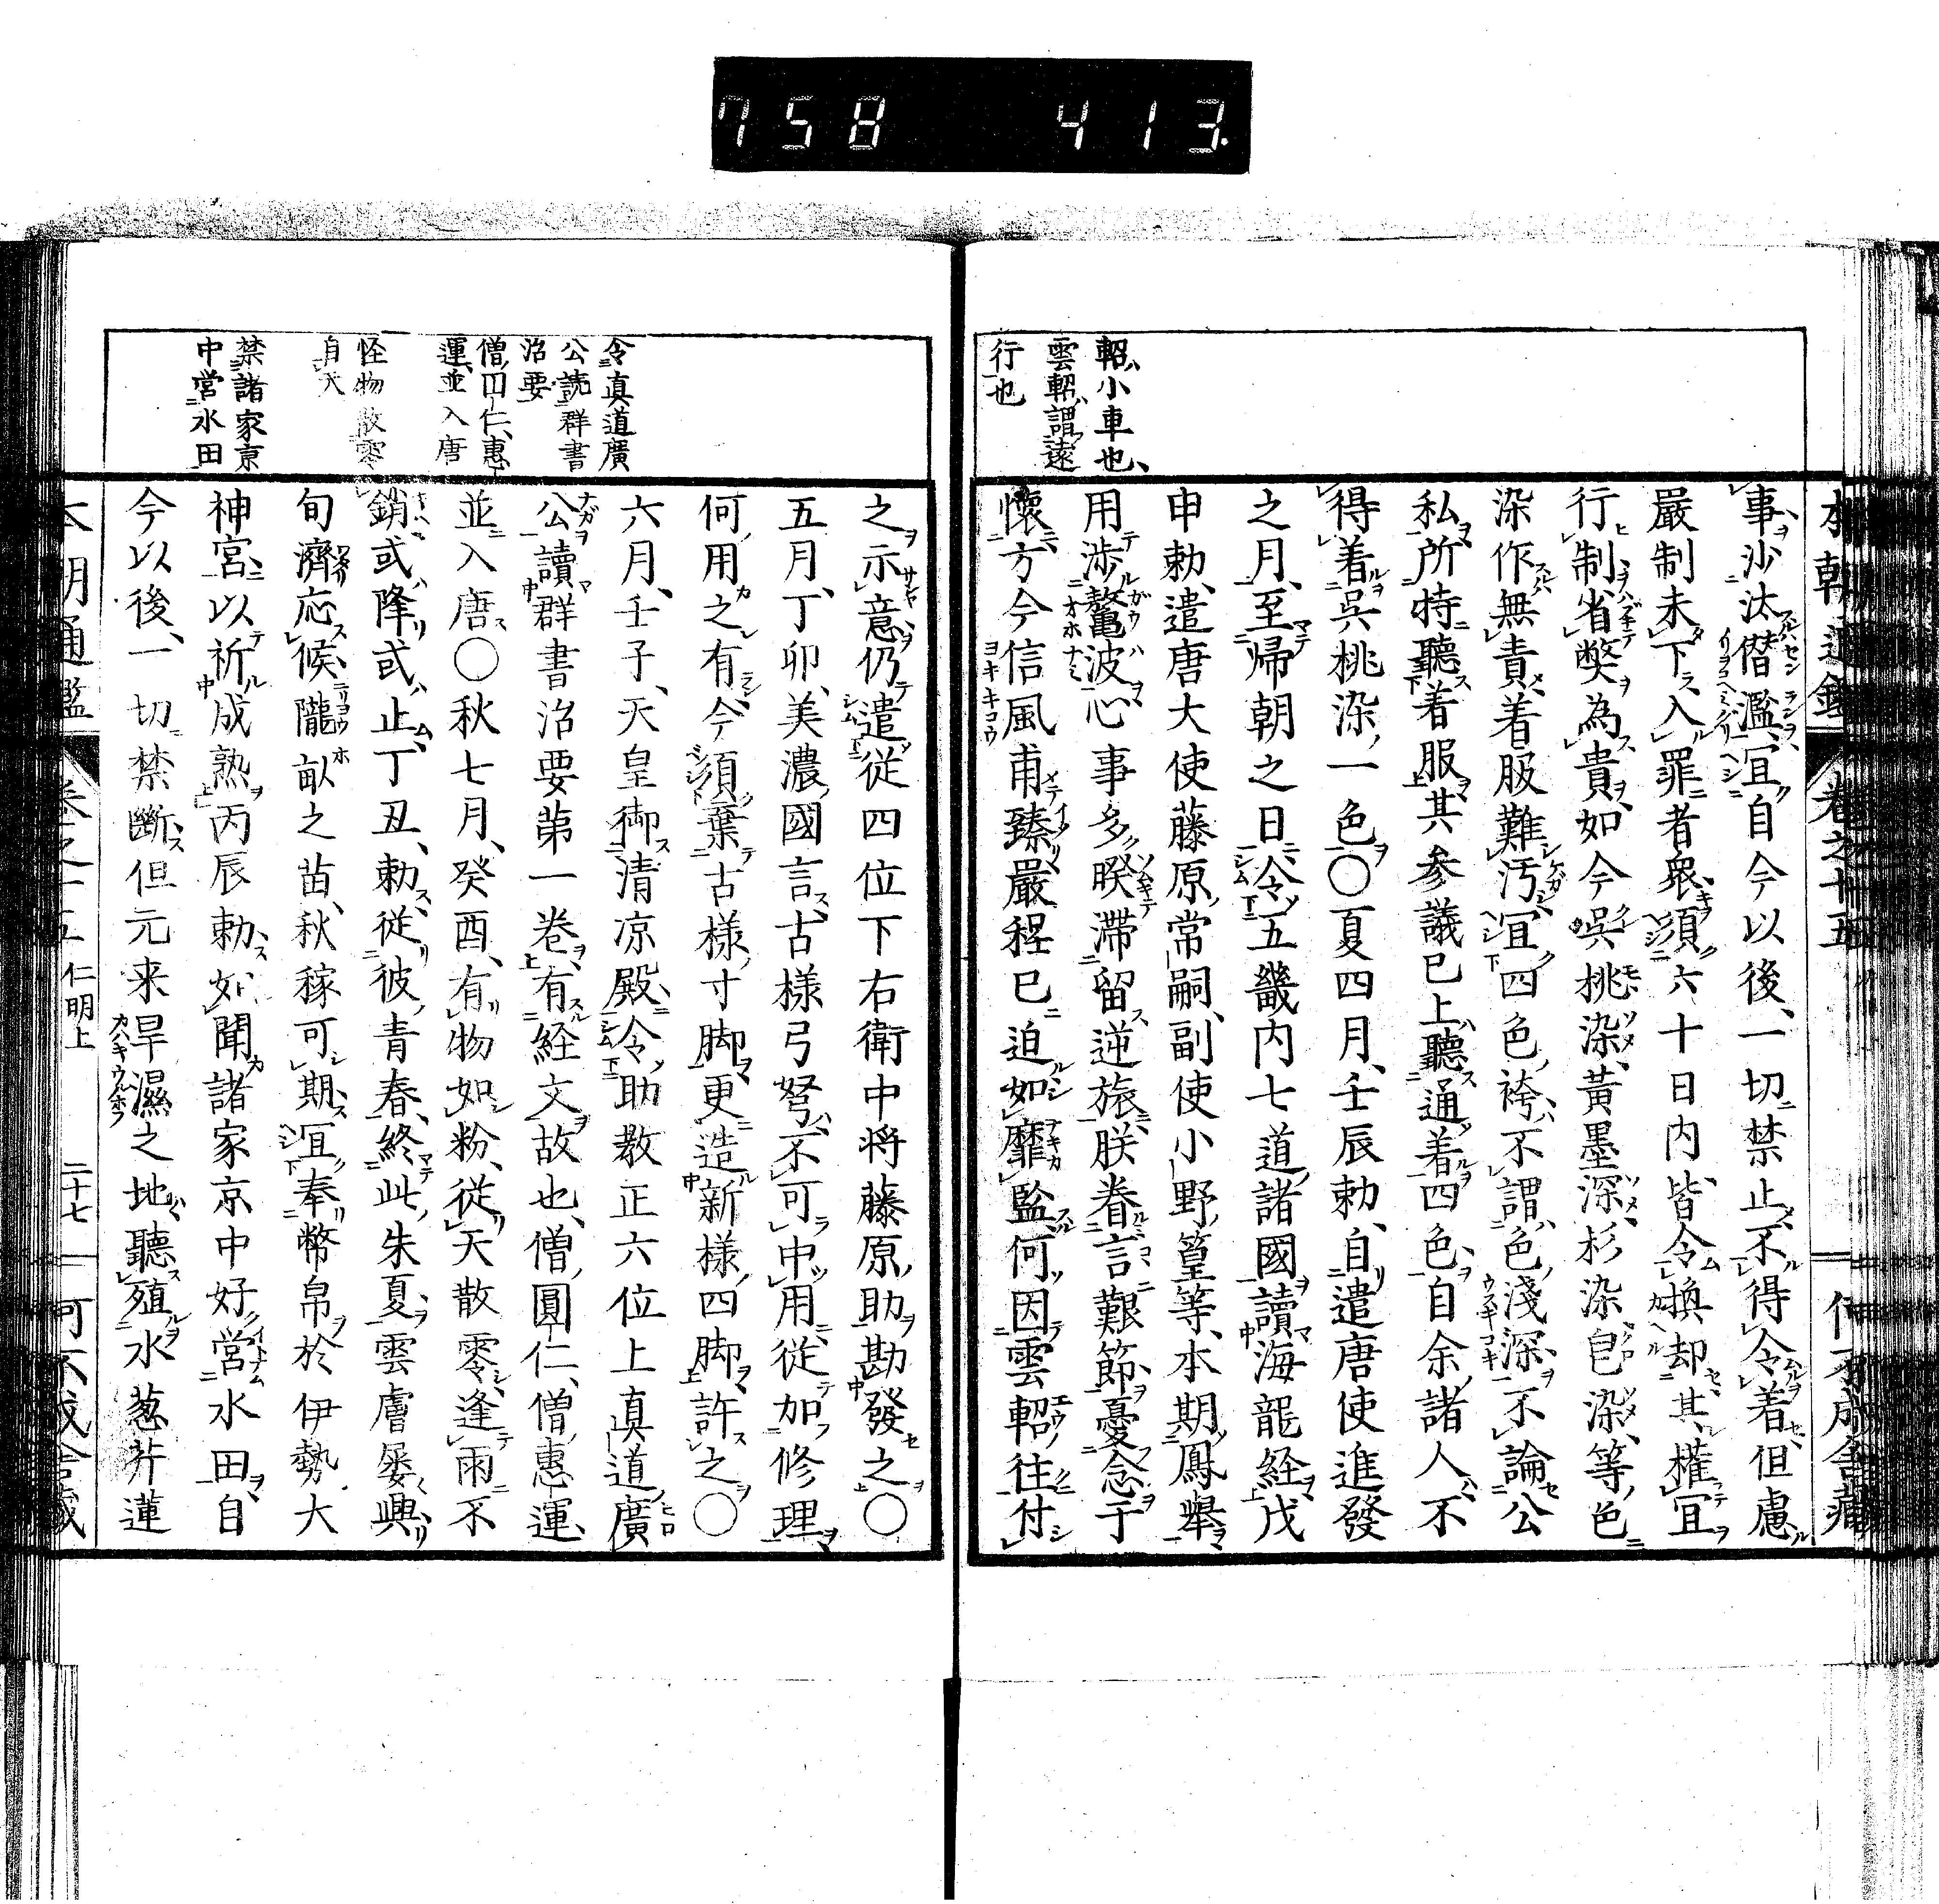 758 413
本朝通鑑 卷之十五
軺小車也
雲軺謂遠
行也
事沙汰僭濫冝自今以後一切禁止不得令着但慮
嚴制未下入罪者衆須六十日内皆令換却其權冝
行制省弊為貴如今呉桃染黃墨深杉染皀染等色
染作無責着服難汚冝四色袴不謂色淺深不論公
私所特聽着服其参議已上聽通着四色自余諸人不
得着呉桃染一色〇夏四月壬辰勅自遣唐使進發
之月至帰朝之日令五畿内七道諸國讀海龍経戊
申勅遣唐大使藤原常嗣副使小野篁等本期鳳舉
用渉鼇波心事多睽滯留逆旅朕眷言艱節憂念于
懷方今信風甫臻嚴程已迫如靡監何因雲軺往付
令真道廣
公読群書
治要
僧円仁惠
運並入唐
怪物散零
自天
禁諸家京
中営水田
之示意仍遣従四位下右衛中将藤原助勘發之〇
五月丁卯美濃國言古様弓弩不可中用従加修理
何用之有今須棄古様寸脚更造新様四脚許之〇
六月壬子天皇御清凉殿令助教正六位上真道廣
公讀群書治要第一卷有経文故也僧圓仁僧惠運
並入唐〇秋七月癸酉有物如粉従天散零逢雨不
銷或降或止丁丑勅従彼青春終此朱夏雲膚屡興
旬濟応候隴畝之苗秋稼可期冝奉幣帛於伊勢大
神宮以祈成熟丙辰勅如聞諸家京中好営水田自
今以後一切禁断但元来旱濕之地聽殖水葱芹蓮
本朝通鑑 卷之十五 仁明上 二十七